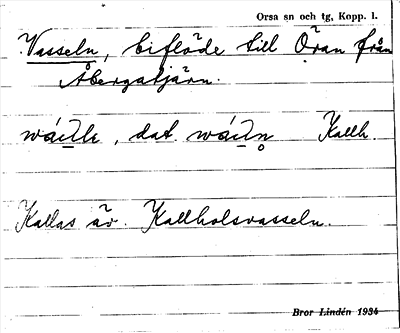 Orsa sn och tg, Kopp. l.
Vasseln, biflöde till Öran från
Åbergatjärn.
dat. Kallh.
Kallas äv. Kallholsvasseln.
Bror Lindén 1934